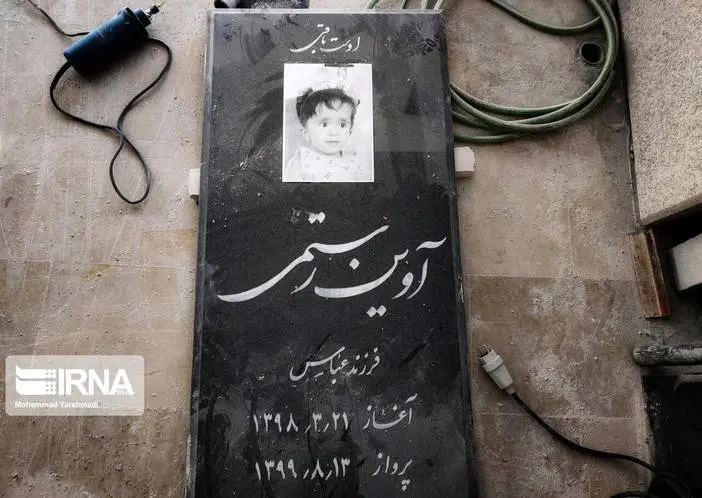 اوست باقی
آوین رستمی
فرزند عباس
آغاز ۱۳۹۸٫۳٫۲۱
پرواز ۱۳۹۹٫۸٫۱۳
IRNA
Mohammad Yarahmadi